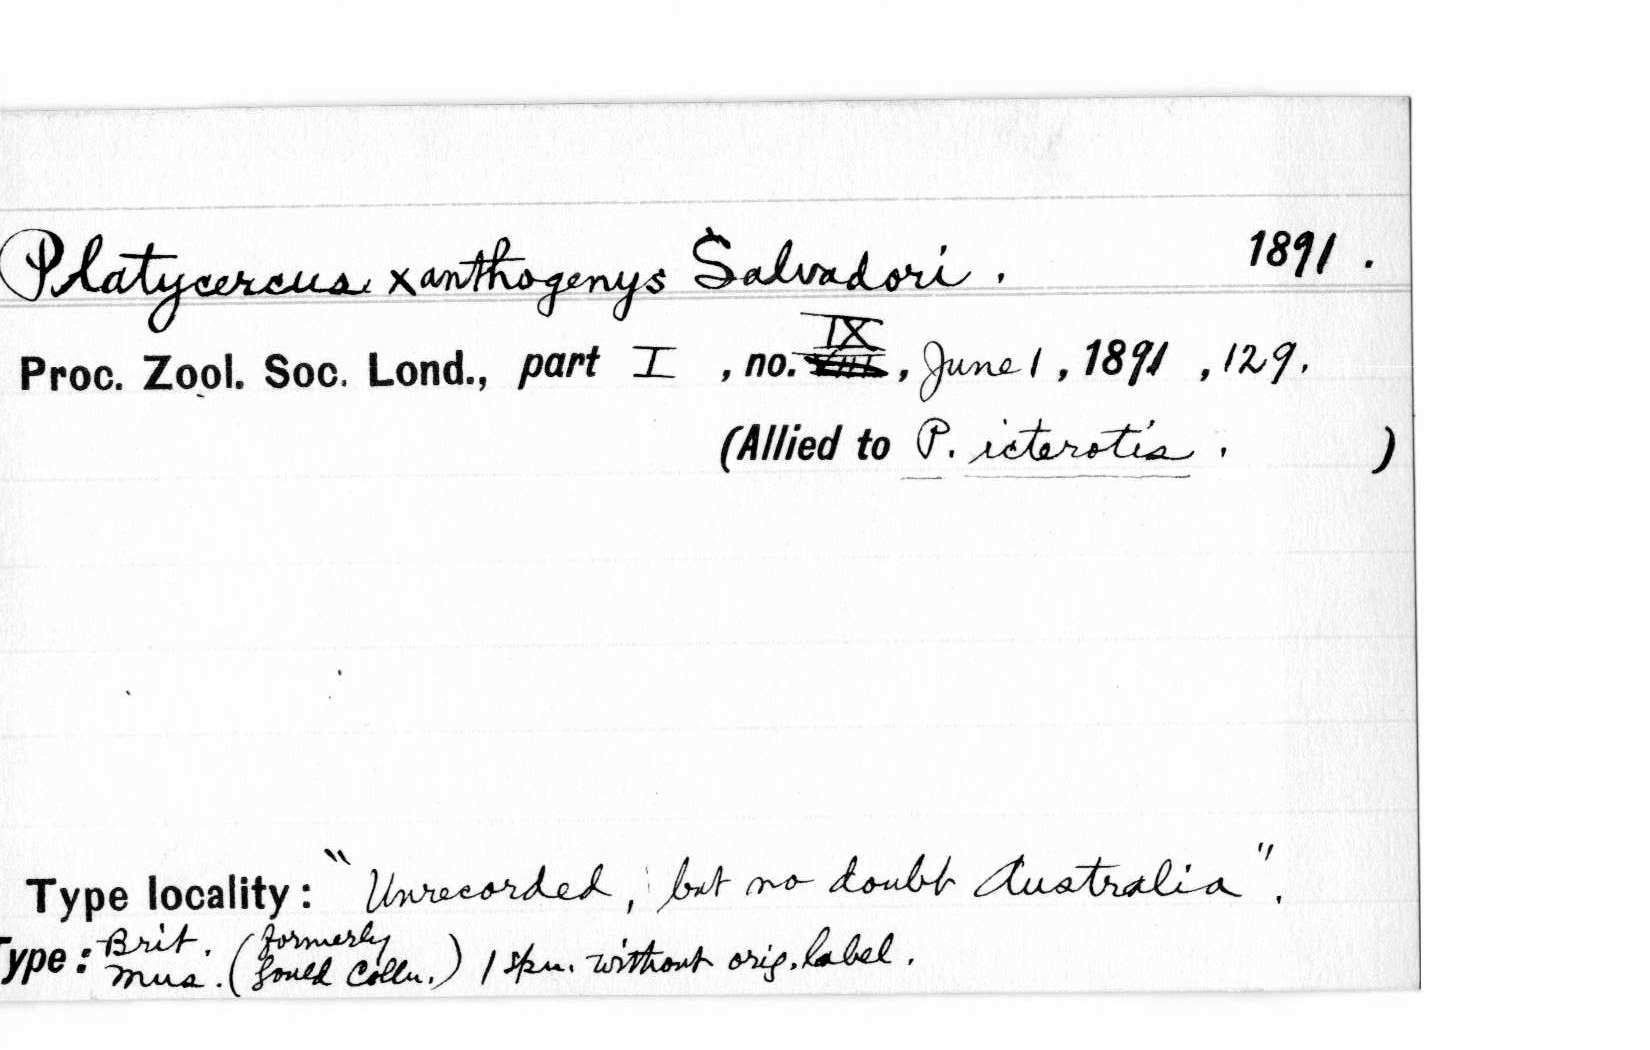 Platycercus xanthogenys Salvadori. 1891.
IX
Proc. Zool. Soc. Lond., part I, no. VIII, June 1, 1891, 129.
(Allied to P. icterotis. )
Type locality: "Unrecorded, but no doubt Australia".
Type: Brit. Mus. (formerly Gould Colln.) 1 spn. without orig. label.